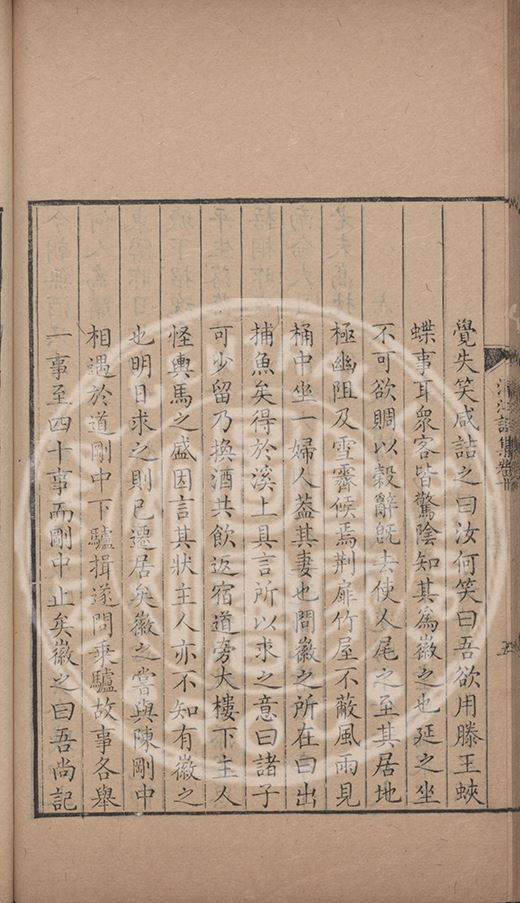 覺失笑咸詰之曰汝何笑曰吾欲用滕王蛺
蝶事耳衆客皆驚陰知其爲徽之也延之坐
不可欲賙以穀辭旣去使人尾之至其居地
極幽阻及雪霽候焉荆扉竹屋不蔽風雨見
桶中坐一婦人葢其妻也問徽之所在曰出
捕魚矣得於溪上具言所以求之意曰諸子
可少留乃換酒共飲返宿道旁大樓下主人
怪輿馬之盛因言其狀主人亦不知有徽之
也明日求之則已遷居矣徽之嘗與陳剛中
相遇於道剛中下驢揖遂問乘驢故事各舉
一事至四十事而剛中止矣徽之曰吾尚記